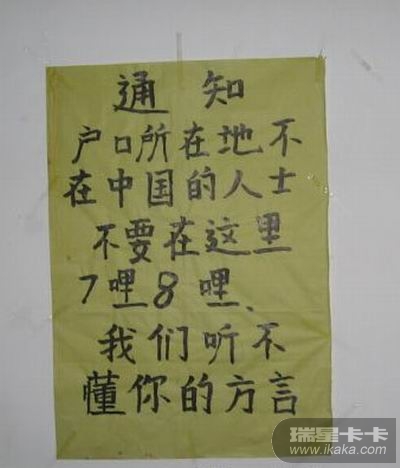 通知
户口所在地不
在中国的人士
不要在这里
7哩8哩、
我们听不
懂你的方言
瑞星卡卡
www.ikaka.com